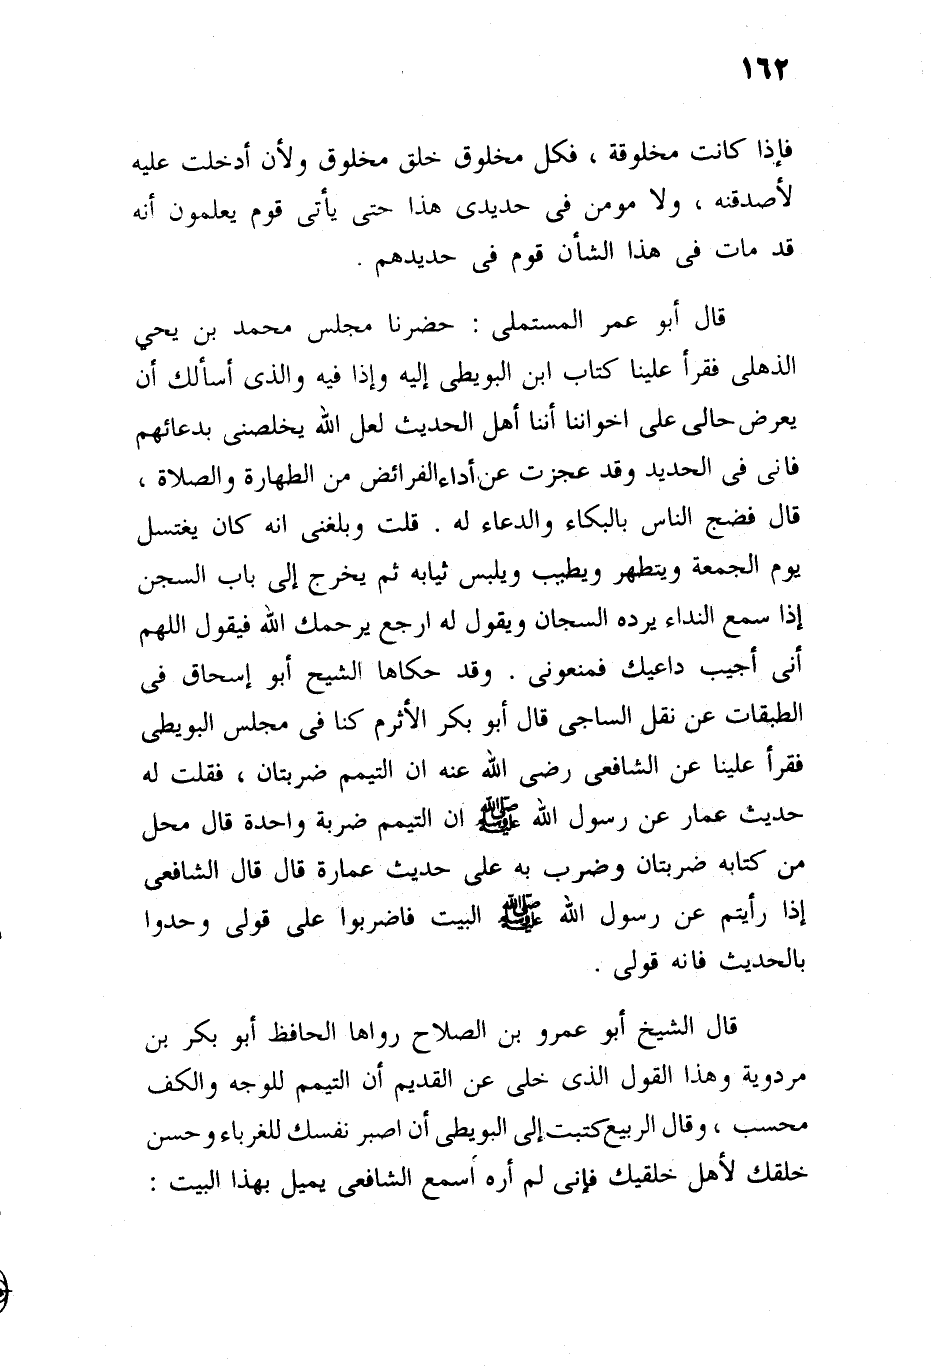 ١٦٢
فإذا كانت مخلوقة ، فكل مخلوق خلق مخلوق ولأن أدخلت عليه
لأصدقنه ، ولا مومن فى حديدى هذا حتى يأتى قوم يعلمون أنه
قد مات فى هذا الشأن قوم فى حديدهم .
قال أبو عمر المستملى : حضرنا مجلس محمد بن يحي
الذهلى فقرأ علينا كتاب ابن البويطى إليه وإذا فيه والذى أسألك أن
يعرض حالى على اخواننا أننا أهل الحديث لعل الله يخلصنى بدعائهم
فانى فى الحديد وقد عجزت عن أداء الفرائض من الطهارة والصلاة ،
قال فضج الناس بالبكاء والدعاء له . قلت وبلغنى انه كان يغتسل
يوم الجمعة ويتطهر ويطيب ويلبس ثيابه ثم يخرج إلى باب السجن
إذا سمع النداء يرده السجان ويقول له ارجع يرحمك الله فيقول اللهم
أنى أجيب داعيك فمنعونى . وقد حكاها الشيح أبو إسحاق فى
الطبقات عن نقل الساجى قال أبو بكر الأثرم كنا فى مجلس البويطى
فقرأ علينا عن الشافعى رضى الله عنه ان التيمم ضربتان ، فقلت له
حديث عمار عن رسول الله ﷺ ان التيمم ضربة واحدة قال محل
من كتابه ضربتان وضرب به على حديث عمارة قال قال الشافعى
إذا رأيتم عن رسول الله ﷺ البيت فاضربوا على قولى وحدوا
بالحديث فانه قولى .
قال الشيخ أبو عمرو بن الصلاح رواها الحافظ أبو بكر بن
مردوية وهذا القول الذى خلى عن القديم أن التيمم للوجه والكف
محسب ، وقال الربيع كتبت إلى البويطى أن اصبر نفسك للغرباء وحسن
خلقك لأهل خلقيك فإنى لم أره أسمع الشافعى يميل بهذا البيت :